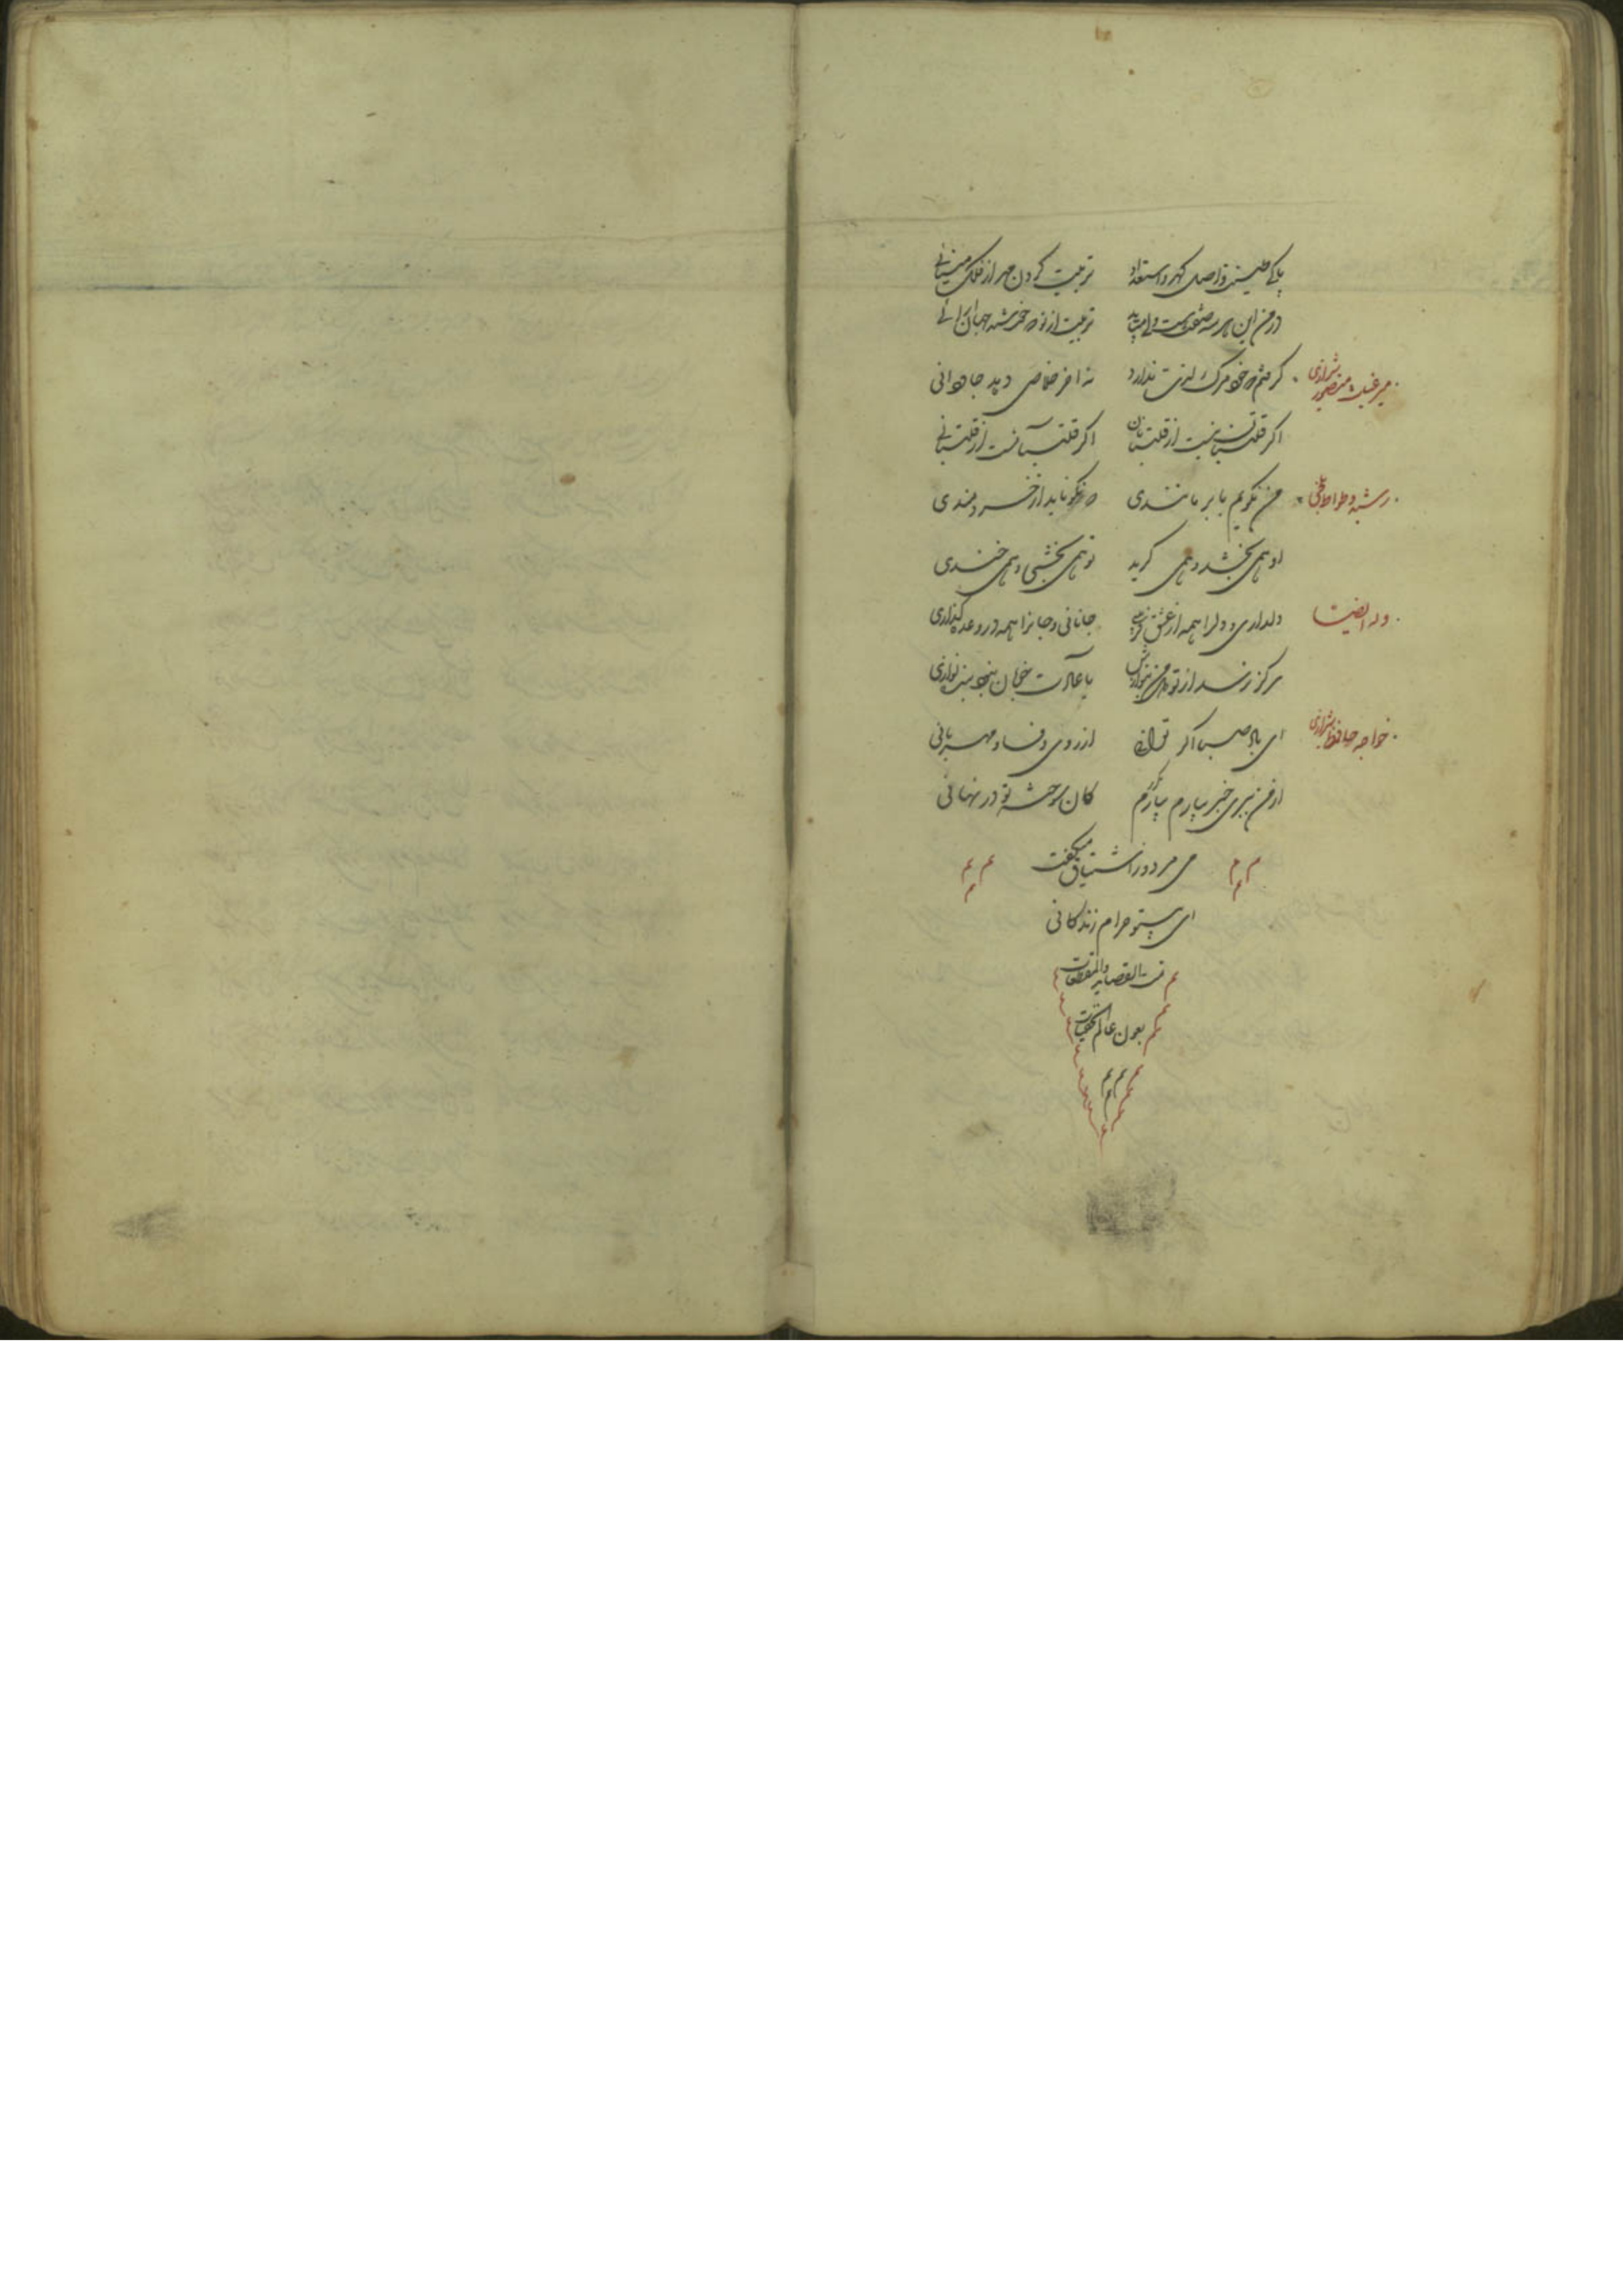 پاکی طینت و اصل گهر و استعداد تربیت کردن مهر از فلک مینایی
در من این هر سه صفت هست ولی می باید تربیت از تو که خورشید جهان آرایی
میر غیاث منصور شیرازی گرفتم که خود مرگ لذت ندارد نه آخر خلاصی دهد جاودانی
اگر قلتبان نیست از قلتبانان اگر قلتبانست از قلتبانی
رشید وطواط بلخی من نگویم بابر مانندی که نکو ناید از خردمندی
او همی بخشد و همی گرید تو همی بخشی و همی خندی
وله ایضا دلداری و دلرا همه از عشق جانانی و جانرا همه در وعده گذاری
هرکز نرسد از تو بمن
خواجه حافظ شیرازی ای باد صبا اگر توانی از روی وفا و مهربانی
از من ببری خبر بیارم کان سوخته تو در نهانی
می مرد و ز اشتیاق میکفت
ای بیتو حرام زندکانی
تمت القصاید والمقطعات
بعون عالم الخفیات